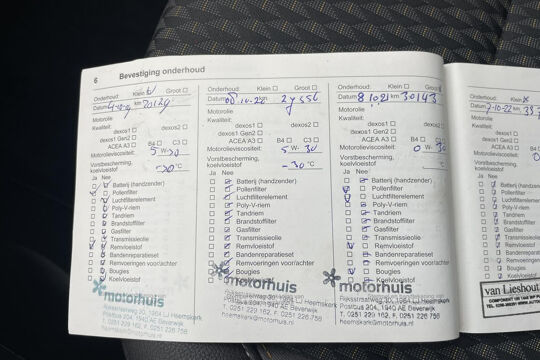 6 Bevestiging onderhoud
Onderhoud: Klein Groot
Datum km 20129
Motorolie
Kwaliteit:
dexos1 dexos2
dexos1 Gen2
ACEA A3 B4 C3
Motorolieviscositeit: 5 W-30
Vorstbescherming,
koelvloeistof °C
Ja Nee
Batterij (handzender)
Pollenfilter
Luchtfilterelement
Poly-V-riem
Tandriem
Brandstoffilter
Gasfilter
Transmissieolie
Remvloeistof
Bandenreparatieset
Remvoeringen voor/achter
Bougies
Koelvloeistof
motorhuis
Rijksstraatweg 30, 1964 LJ Heemskerk
Postbus 204, 1940 AE Beverwijk
T. 0251 229 162, F. 0251 226 756
heemskerk@motorhuis.nl
Onderhoud: Klein Groot
Datum
Motorolie
Kwaliteit:
dexos1 dexos2
dexos1 Gen2
ACEA A3 B4 C3
Motorolieviscositeit: 5 W- 30
Vorstbescherming,
koelvloeistof -30 °C
Ja Nee
Batterij (handzender)
Pollenfilter
Luchtfilterelement
Poly-V-riem
Tandriem
Brandstoffilter
Gasfilter
Transmissieolie
Remvloeistof
Bandenreparatieset
Remvoeringen voor/achter
Bougies
motorhuis
Rijksstraatweg 30, 1964 LJ Heemskerk
Postbus 204, 1940 AE Beverwijk
T. 0251 229 162, F. 0251 226 756
Onderhoud: Klein Groot
Datum 8 10 21 km 30143
Motorolie
Kwaliteit:
dexos1 dexos2
dexos1 Gen2
ACEA A3 B4 C3
Motorolieviscositeit: 0 W-
Vorstbescherming,
koelvloeistof °C
Ja Nee
Batterij (handzender)
Pollenfilter
Luchtfilterelement
Poly-V-riem
Tandriem
Brandstoffilter
Gasfilter
Transmissieolie
Remvloeistof
Bandenreparatieset
Remvoeringen voor/achter
Bougies
Koelvloeistof
motorhuis
Rijksstraatweg 30, 1964 LJ Heemskerk
Postbus 204, 1940 AE Beverwijk
T. 0251 229 162, F. 0251 226 756
heemskerk@motorhuis.nl
Onderhoud: Klein
Datum 10-22 km
Motorolie
Kwaliteit:
dexos1
dexos1 Gen2
ACEA A3
Motorolieviscositeit:
Vorstbescherming,
koelvloeistof
Ja Nee
Batterij (handz
Pollenfilter
Luchtfilterelem
Poly-V-riem
Tandriem
Brandstoffilter
Gasfilter
Transmissieol
Remvloeistof
Bandenrepara
Remvoeringen
Bougies
Koelvloeistof
van Lieshout